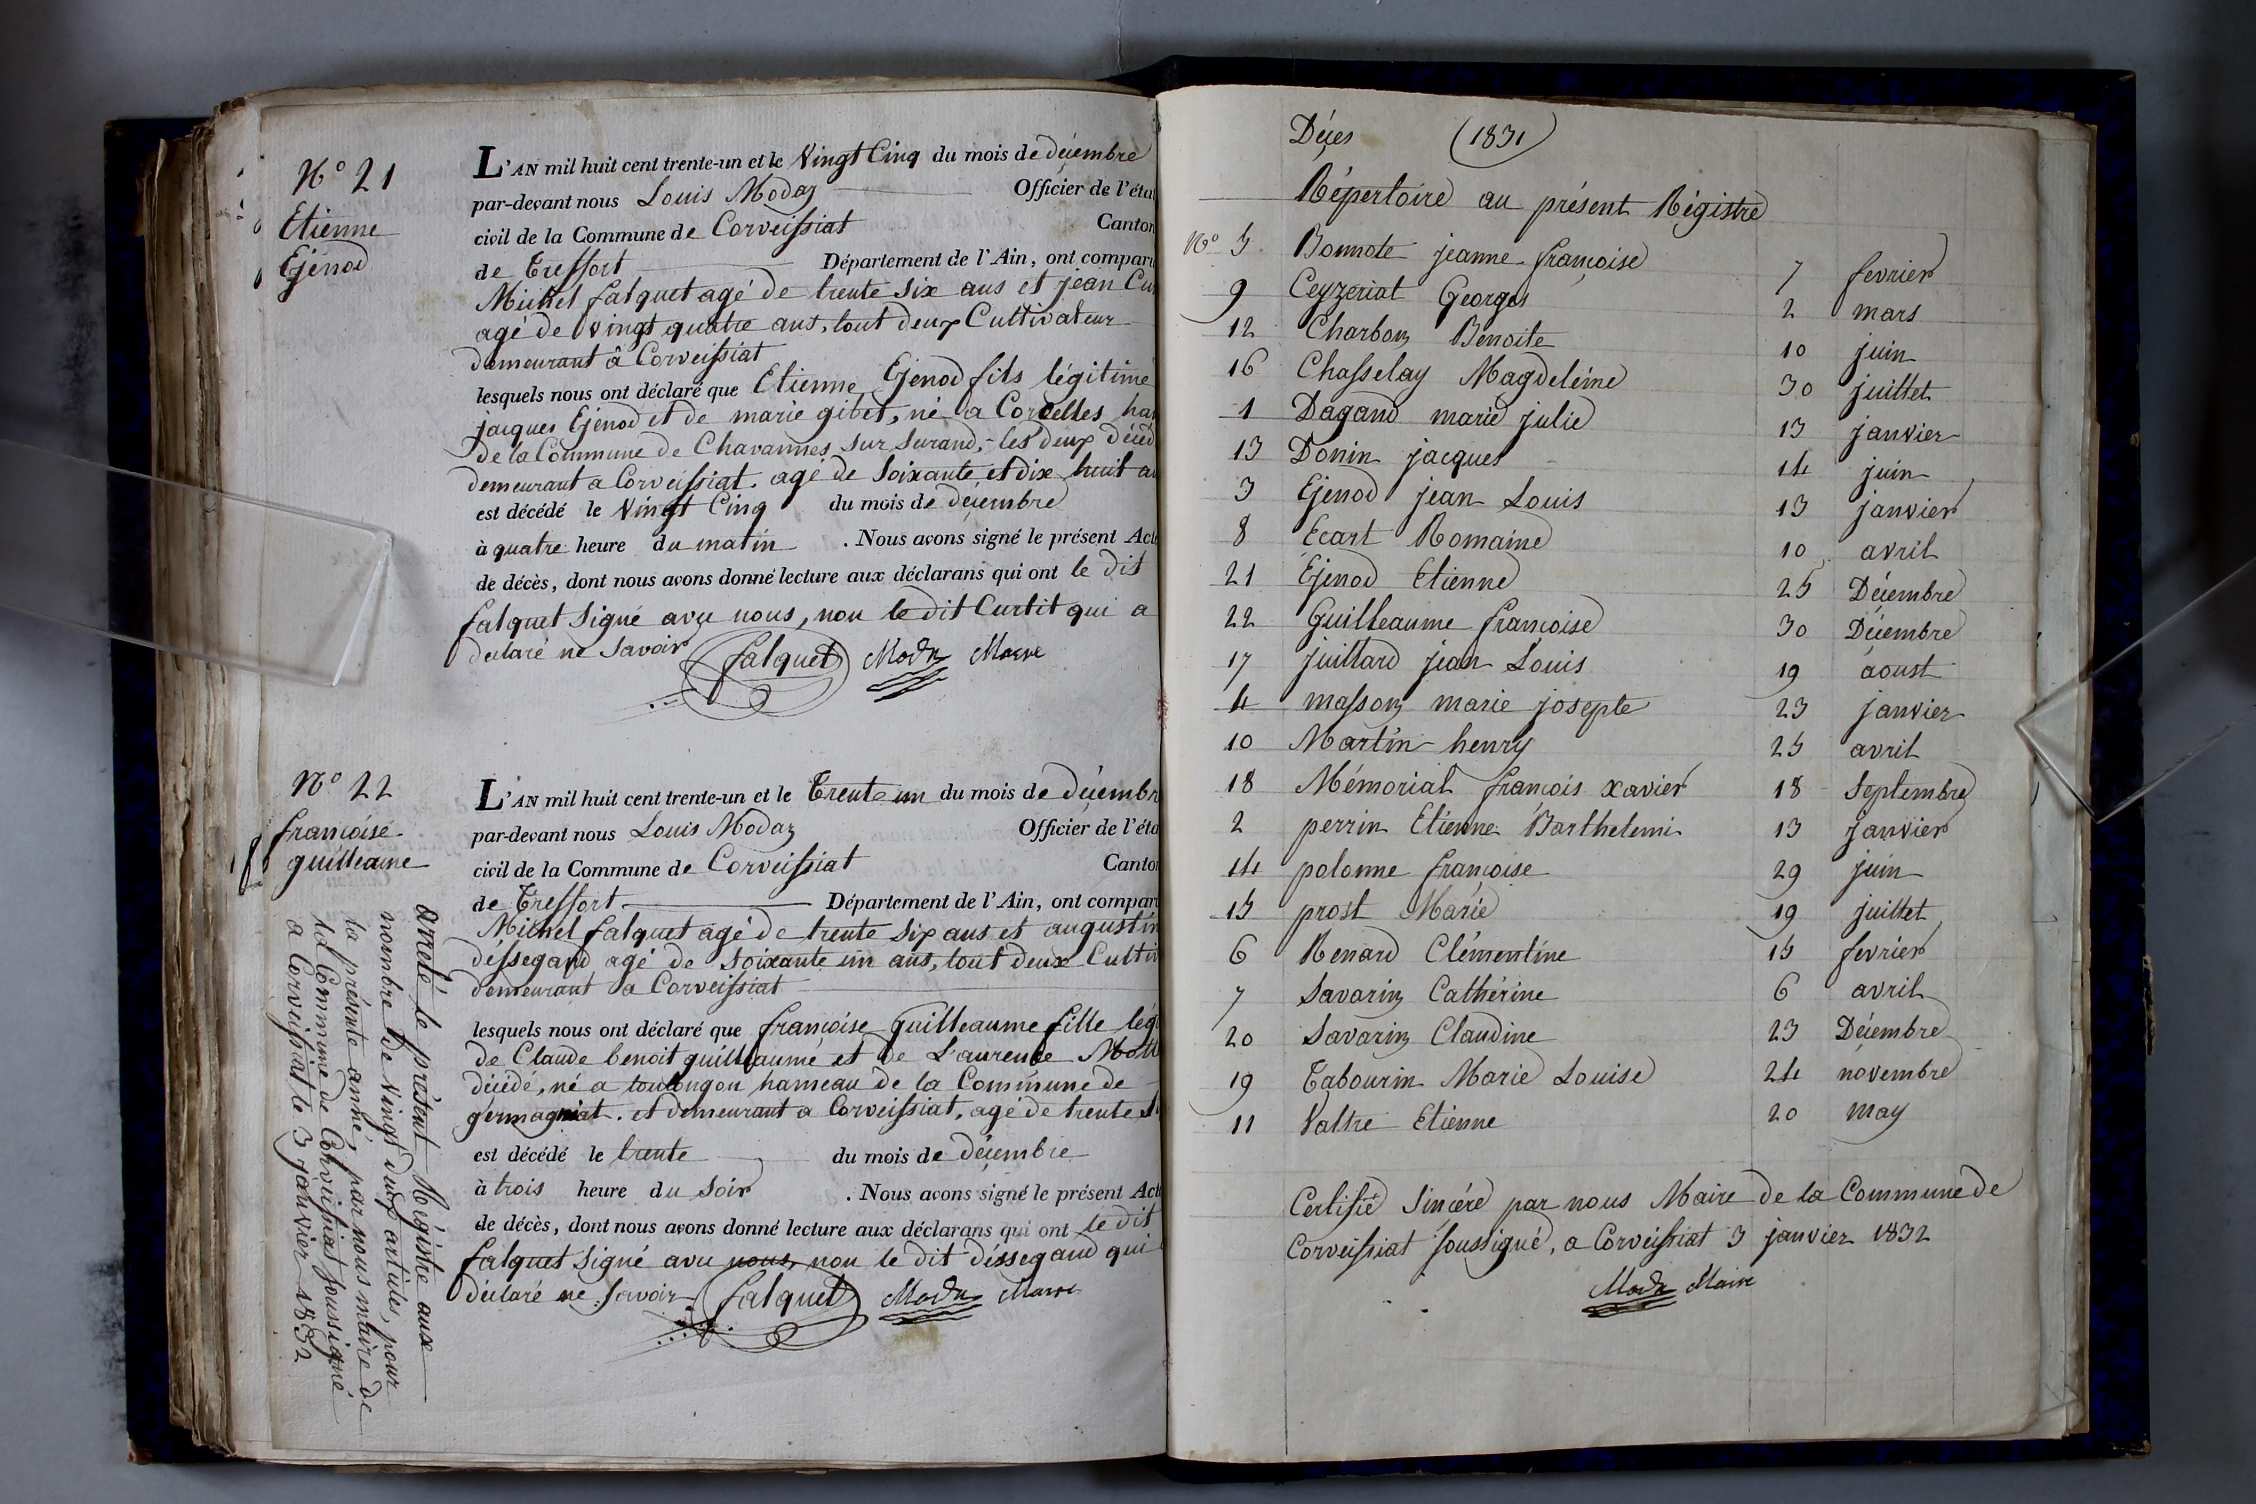 N° 21
Etienne
Ejenod
L'AN mil huit cent trente-un et le Vingt Cinq du mois de décembre
par-devant nous Louis Modaz Officier de l'éta
civil de la Commune de Corveissiat Canton
de Treffort Département de l'Ain, ont comparu
Michel falquet agé de trente six ans et jean Cur
agé de vingt quatre ans, tout deux Cultivateur
demeurant à Corveissiat
lesquels nous ont déclaré que Etienne Ejenod fils légitime
jacques Ejenod et de marie gibet, né a Corcelles ha
de la Commune de Chavannes sur Surand, les deux décéd
demeurant a Corveissiat. agé de soixante et dix huit a
est décédé le Vingt Cinq du mois de décembre
à quatre heure du matin . Nous avons signé le présent Acte
de décès, dont nous avons donné lecture aux déclarans qui ont le dit
falquet signé avec nous, non le dit Curtit qui a
declaré ne savoir falquet Modaz Maire
N° 22
françoise
guilleaume
L'AN mil huit cent trente-un et le Trente un du mois de décembre
par-devant nous Louis Modaz Officier de l'éta
civil de la Commune de Corveissiat Canton
de Treffort Département de l'Ain, ont comparu
Michel falquet agé de trente six ans et augustin
déssegaud agé de soixante un ans, tout deux Cultiv
demeurant a Corveissiat
lesquels nous ont déclaré que françoise guilleaume fille lég
de Claude benoit guilleaume et de Laurence
décédé, né a toulongou hameau de la Commune de
germagniat. et demeurant a Corveissiat, agé de trente
est décédé le trente du mois de décembre
à trois heure du soir . Nous avons signé le présent Acte
de décès, dont nous avons donné lecture aux déclarans qui ont le dit
falquet signé avec nous, non le dit déssegaud qui
déclaré ne savoir falquet Modaz Maire
areté le présent Régistre aux
nonbre de Vingt deux articles, pour
la présente année, par nous maire de
la Commune de Corveissiat soussigné
a Corveissiat le 3 janvier 1832
Déçes (1831)
Répertoire au présent Régistre
N° 5 Bonnote jeanne françoise 7 fevrier
9 Ceyzeriat Georges 2 mars
12 Charbon Benoite 10 juin
16 Chasselay Magdeléine 30 juillet
1 Dagand marie julie 13 janvier
13 Donin jacques 14 juin
3 Ejenod jean Louis 13 janvier
8 Ecart Romaine 10 avril
21 Ejenod Etienne 25 Décembre
22 Guilleaume françoise 30 Décembre
17 juillard jean Louis 19 aoust
4 masson marie josepte 23 janvier
10 Martin henry 25 avril
18 Mémorial françois xavier 18 Septembre
2 perrin Etienne Barthelemi 13 janvier
14 polonne françoise 29 juin
15 prost Marie 19 juillet
6 Renard Clémentine 15 fevrier
7 Savarin Cathérine 6 avril
20 Savarin Claudine 23 Décembre
19 Tabourin Marie Louise 24 novembre
11 Valtre Etienne 20 may
Certifié Sincére par nous Maire de la Commune de
Corveissiat soussigné, a Corveissiat 3 janvier 1832
Modaz Maire